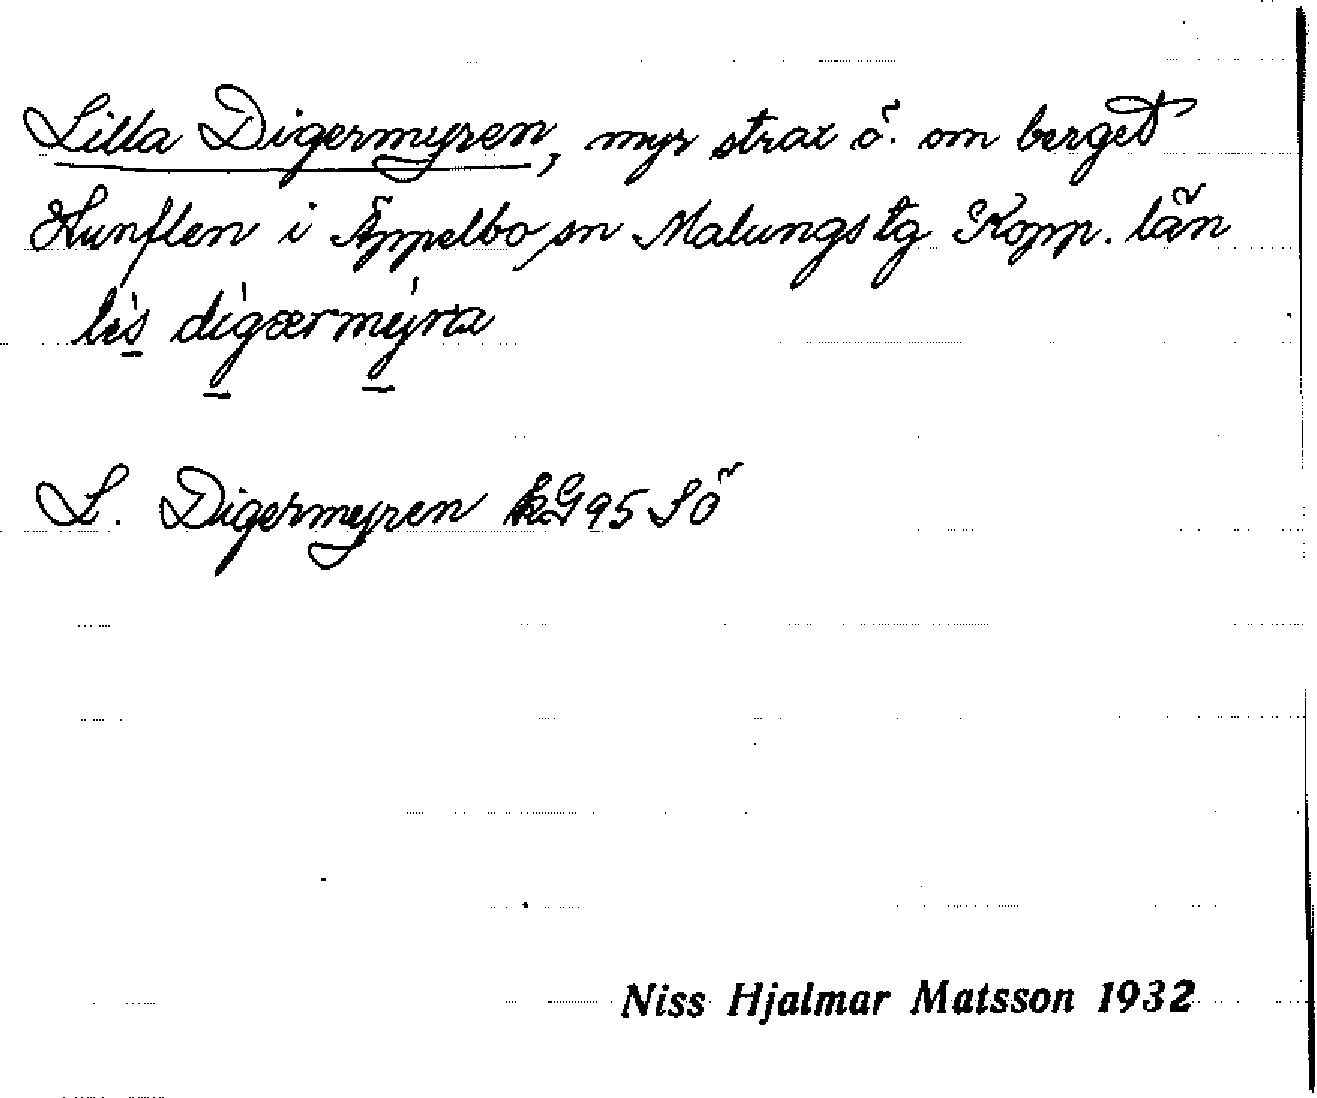 Lilla Digermyren, myr strax ö. om berget
Hunflen i Äppelbo sn Malungs tg Kopp. län
digærmyra
L. Digermyren kG95 SÖ
Niss Hjalmar Matsson 1932